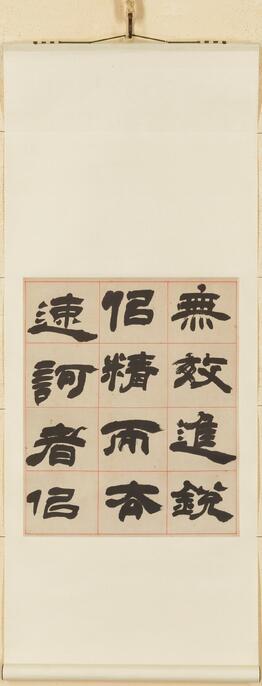 無效進銳
佀精而
速訶者佀